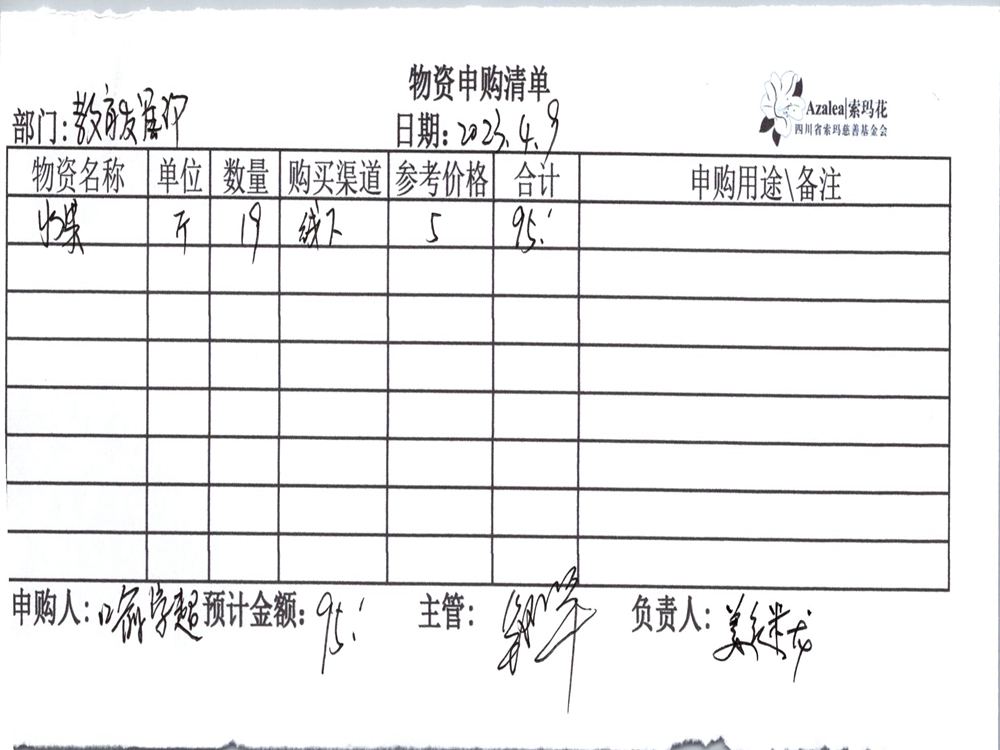 物资申购清单
Azalea|索玛花
四川省索玛慈善基金会
部门:教育发展部
日期:2023.4.9
物资名称 单位 数量 购买渠道 参考价格 合计 申购用途\备注
水果 斤 19 线下 5 95.
申购人: 预计金额:95. 主管: 负责人: